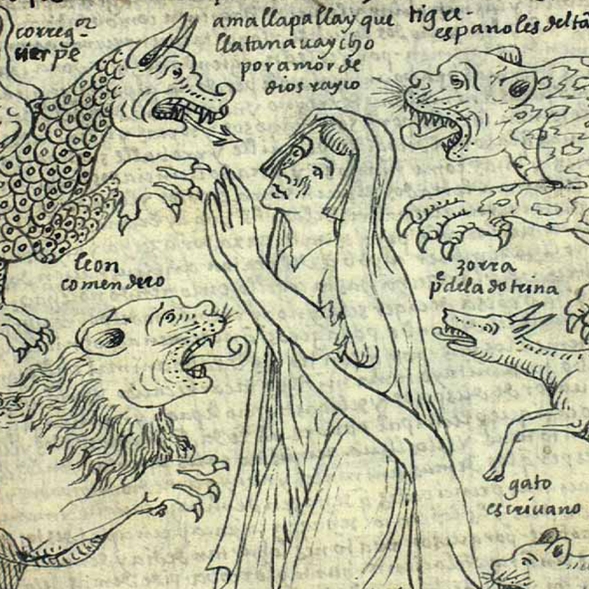 correg.or
cierpe
amallapallayque
llatanauaycho
poramor de
dios rayco
tigre-
espanoles del tã
leon
comendero
zorra
pe dela dotrina
gato
escriuano